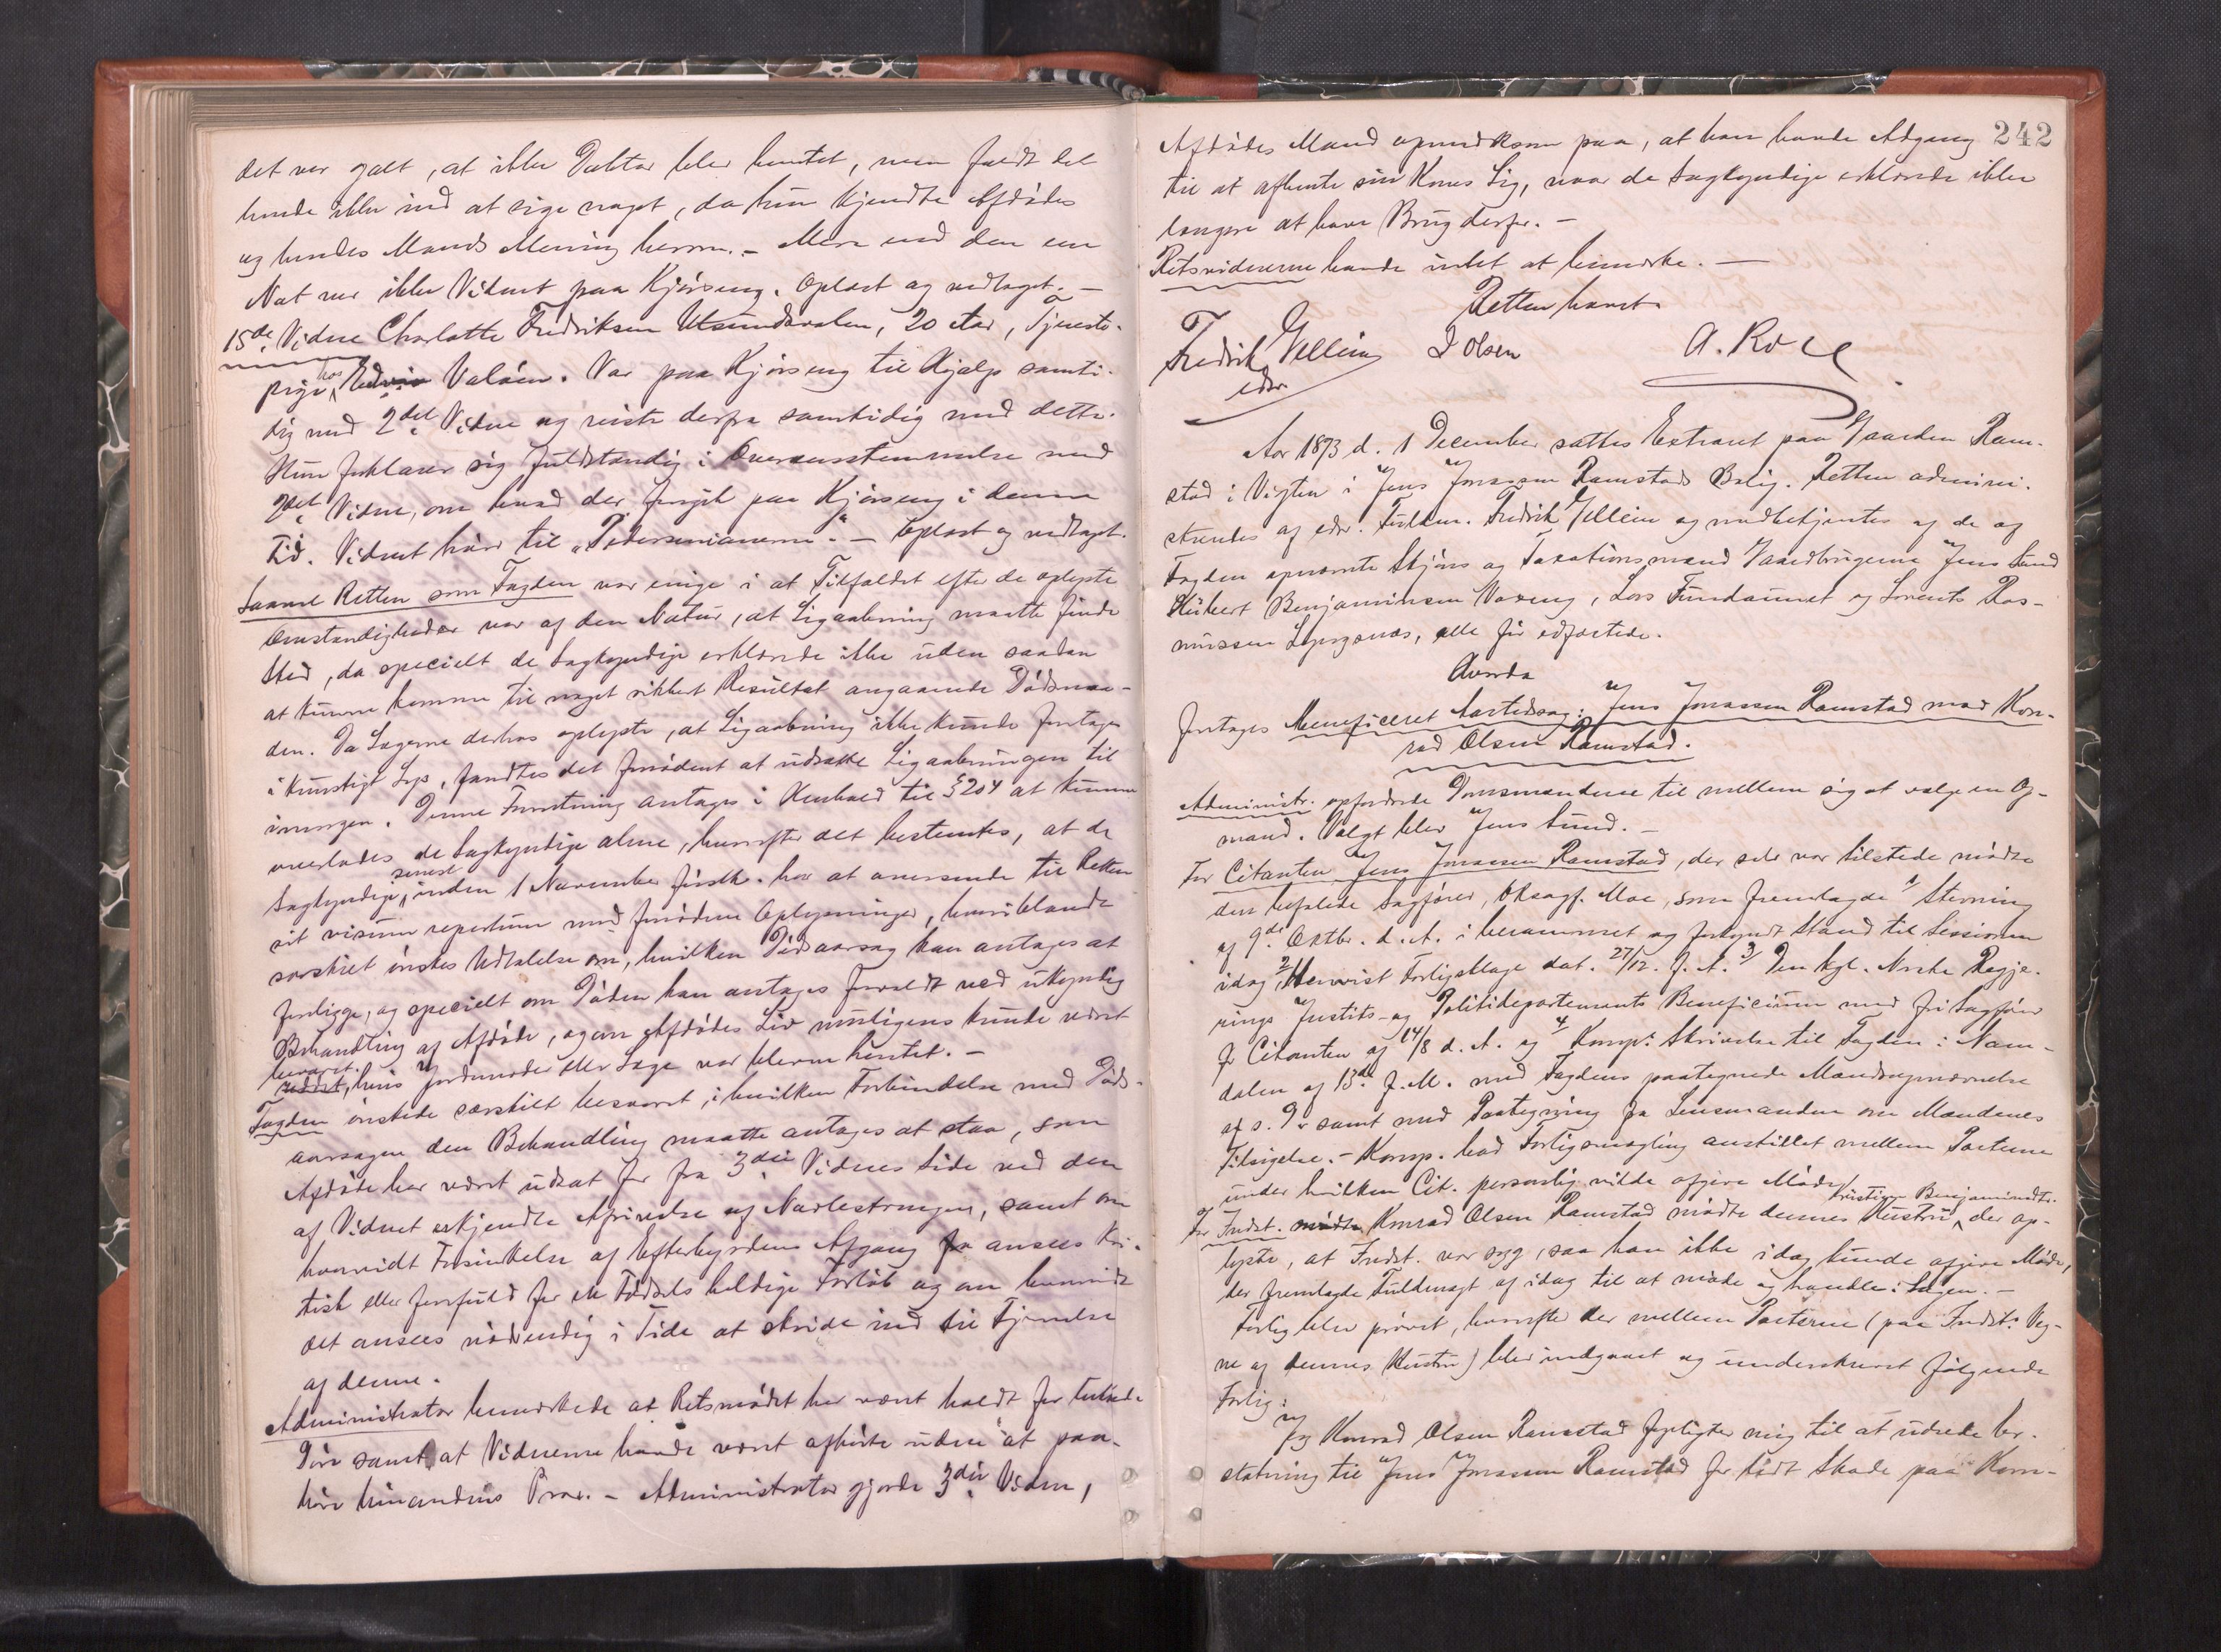 det var galt, at ikke Doktor blev hentet, men faldt det
hende ikke ind at sige noget, da hun kjendte Afdødes
og hendes Mands Mening herom. - Mere end den ene
Nat var ikke Vidnet paa Kjørseng. Oplæst og vedtaget. -
15de Vidne Charlotte Fredriksen Utsundsvalen, 20 Aar, Tjeneste-
pige hos Valøen. Var paa Kjørseng til Hjælp samti-
dig med 2det Vidne og reiste derfra samtidig med dette.
Hun forklarer sig fuldstændig i Overensstemmelse med
2det Vidne, om hvad der foregik paa Kjørseng i denne
Tid. Vidnet hører til "Pedersenianerne". - Oplæst og vedtaget.
Saavel Retten som Fogden var enige i at Tilfældet efter de oplyste
Omstændigheder var af den Natur, at Ligaabning maatte finde
Sted, da specielt de Sagkyndige erklærede ikke uden saadan
at kunne komme til noget sikkert Resultat angaaende Dødsmaa-
den. Da Lægerne derhos oplyste, at Ligaabning ikke kunde foretages
i kunstigt Lys, fandtes det fornødent at udsætte Ligaabningen til
imorgen. Denne Forretning antages i Henhold til § 204 at kunne
overlades de Sagkyndige alene, hvorefter det bestemtes, at de
Sagkyndige senest inden 1 November førstk. har at oversende til Retten
sit visum repertum med fornødne Oplysninger, hvoriblandt
særskilt ønskes Udtalelse om, hvilken Dødsaarsag kan antages at
foreligge, og specielt om Døden kan antages forvoldt ved ukyndig
Behandling af Afdøde, og om Afdødes Liv muligens kunde været
bevaret, hvis Jordmoder eller Læge var bleven hentet. -
Fogden ønskede særskilt besvaret, i hvilken Forbindelse med Døds-
aarsagen den Behandling maatte antages at staa, som
Afdøde har været udsat for fra 3die Vidnes Side ved den
af Vidnet erkjendte Afrivelse af Navlestrengen, samt om
hvorvidt Forsinkelse af Efterbyrdens Afgang ansees kri-
tisk eller farefuld for en Fødsels heldige Forløb og om hvorvidt
det ansees nødvendig i Tide at skride ind til Fjernelse
af denne.
Administrator bemærkede at Retsmødet har været holdt for lukkede
Døre samt at Vidnerne havde været afhørte uden at paa-
høre hinandens Prov. - Administrator gjorde 3die Vidne,
242
Afdødes Mand opmærksom paa, at han havde Adgang
til at afhente sin Kones Lig, naar de Sagkyndige erklærede ikke
længere at have Brug derfor. -
Retsvidnerne havde intet at bemærke. -
Retten hævet.
Fredrik Gellein J Olsen A. Roll
edsv
Aar 1893 d. 1 December sattes Extraret paa Gaarden Ram-
stad i Vigten i Jens Jonassen Ramstads Bolig. Retten admini-
streredes af edsv. Fuldm. Fredrik Gellein og medbetjentes af de af
Fogden opnævnte Skjøns og Taxationsmænd Gaardbrugerne Jens Sund
Hubert Benjaminsen Voxeng, Lars Fundaunet og Lorents Ras-
mussen , alle før edfæstede.
Hvorda
foretoges Beneficeret Aastedssag: Jens Jonassen Ramstad mod Kon-
rad Olsen Ramstad.
Administr. opfordrede Domsmændene til mellem sig at vælge en Op-
mand. Valgt blev Jens Sund. -
For Citanten Jens Jonassen Ramstad, der selv var tilstede mødte
den befalede Sagfører, Oksagf. Moe, som fremlagde 1/ Stevning
af 9de Oktbr. d. A. i berammet og forkyndt Stand til Sessionen
idag, 2/ Henvist Forligsklage dat. 27/12. f. A. 3/ Den kgl. Norske Regje-
rings Justits- og Politidepartements Beneficium med fri Sagfører
for Citanten af 14/8 d. A. og 4/ Komp.s Skrivelse til Fogden i Nam-
dalen af 13de f. M. med Fogdens paategnede Mandsopnævnelse
af s. D. samt med Paategning fra Lensmanden om Mændenes
Tilsigelse. - Komp. bad Forligsmægling anstillet mellem Parterne
under hvilken Cit. personlig vilde afgive Møde.
For Indst. Konrad Olsen Ramstad mødte dennes Hustru Kristine Benjaminsdtr. der op-
lyste, at Indst. var syg, saa han ikke idag kunde afgive Møde,
der fremlagde Fuldmagt af idag til at møde og handle i Sagen. -
Forlig blev prøvet, hvorefter der mellem Parterne (paa Indst.s Veg-
ne af dennes Hustru) blev indgaaet og underskrevet følgende
Forlig:
Jeg Konrad Olsen Ramstad forpligter mig til at udrede Er-
statning til Jens Jonassen Ramstad for lidt Skade paa Korn-